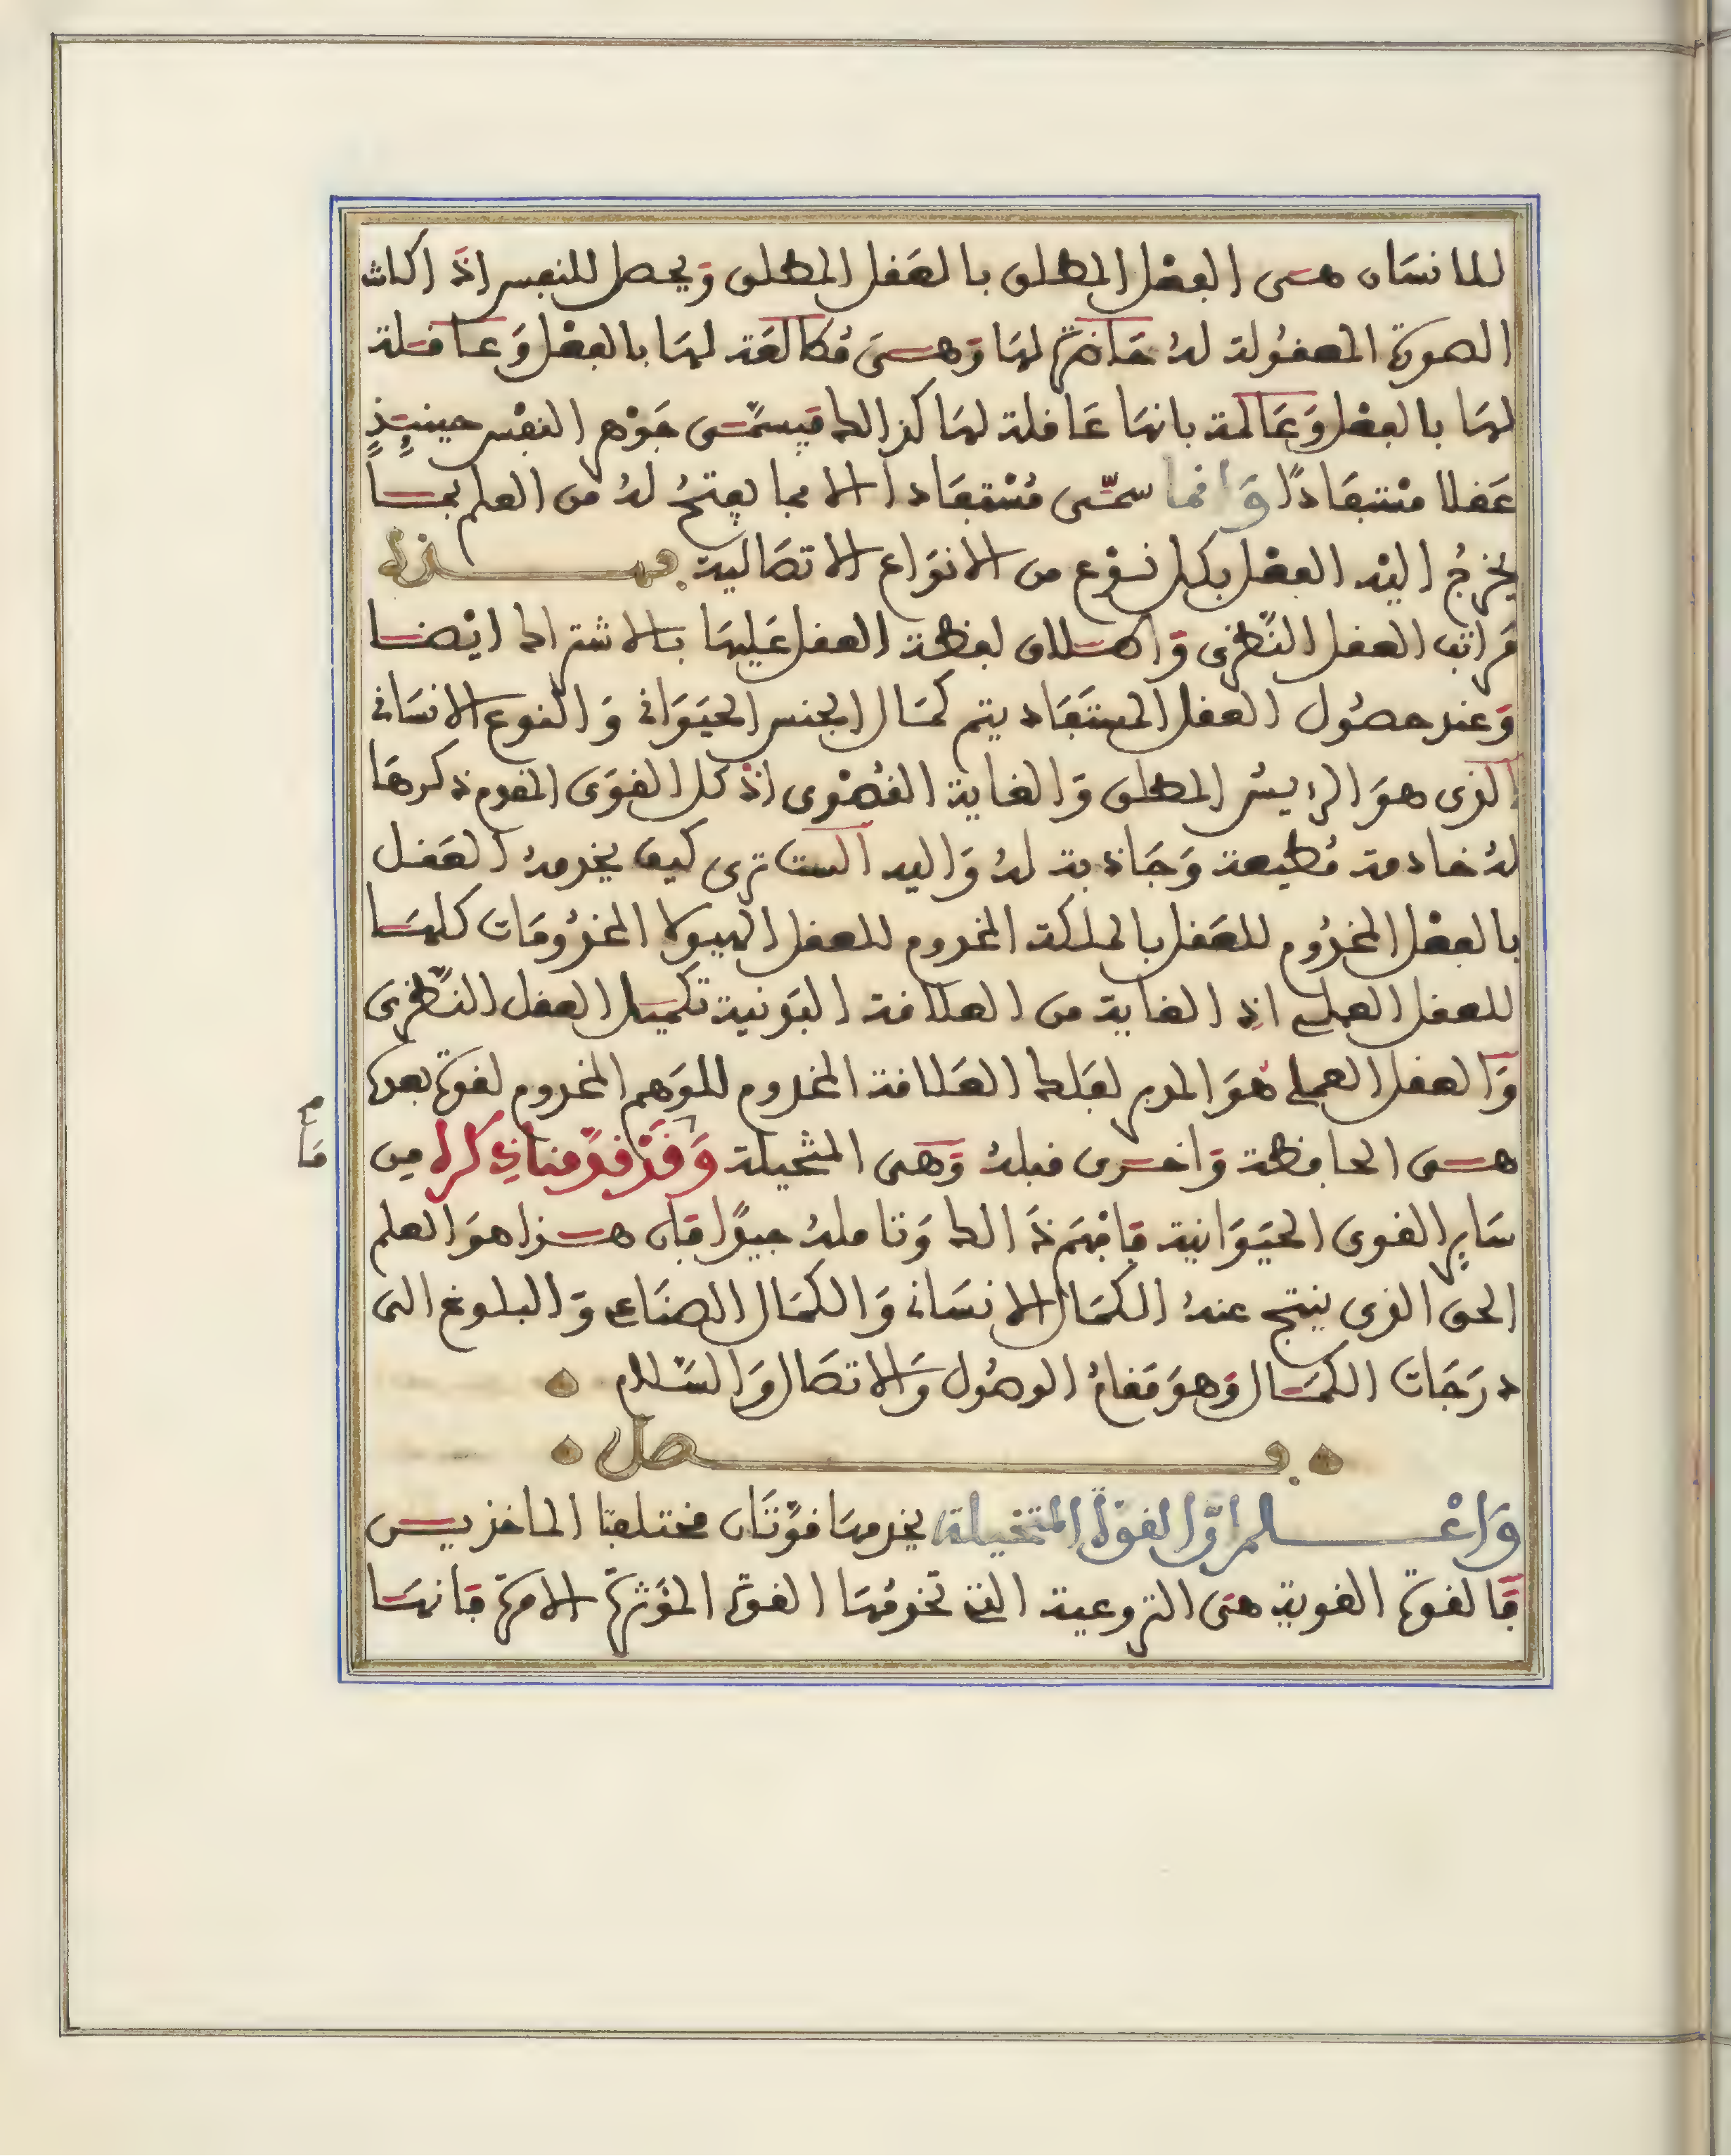 للانسان هى العقل المطلق بالعقل المطلق ويحصل للنفس اذا كانت
الصورة المعقولة له حاضرة لها وهى مطالعة لها بالفعل وعاقلة
لها بالفعل وعالمة بانها عاقلة لها كذالك فيسمّى جوهر النفس حينئذٍ
عقلا مستفادًا وانما سمّى مستفادا الا مما يفتحُ له من العلم بما
يخرجُ اليْه العقل بكل نوع من الانواع الاتصالية فهذه
مراتب العقل النّظرى واطلاق لفظة العقل عليها بالاشتراك ايْضا
وعند حصُول العقل المستفاد يتم كمال الجنس الحيوانى والنوع الانسانى
الذى هو الرئيس المطلق والغاية القُصْوى اذ كل القوى المقدم ذكرها
لهُ خادمة مُطيعة وجاذبة لهُ واليه الست ترى كيف يخدمهُ العقل
بالفعْل المخدُوم للعقل بالملكة المخدوم للعقل الهيولا المخدُومات كلها
للعقل العملى اذِ الغاية من العلاقة البدنية تكميل العقل النّظرى
والعقل العملى هو المدبر لتلك العلاقة المخدوم للوهم المخدوم لقوة بعده
هى الحافظة واخرى قبلهُ وهى المتخيلة وقدْ قدّمنا ذكرك من
ساير القوى الحيوانية فافهم ذالك وتاملهُ جيدًا فان هذا هو العلم
الحق الذى ينتج عندهُ الكمال الانسانى والكمال الصناعى والبلوغ الى
درجات الكمال وهو مقامُ الوصُول والاتصال والسّلام
فصل
واعْلم انّ القوّة المتخيلة يخدمها قوّتان مختلفتا الماخذيس
فالقوة القوية هى النزوعية التى تخدمُها القوة المؤثرة الامرة فانها
م
ما